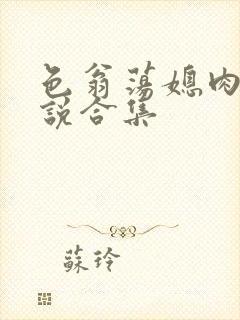 色翁荡媳肉
说合集
蘇玲